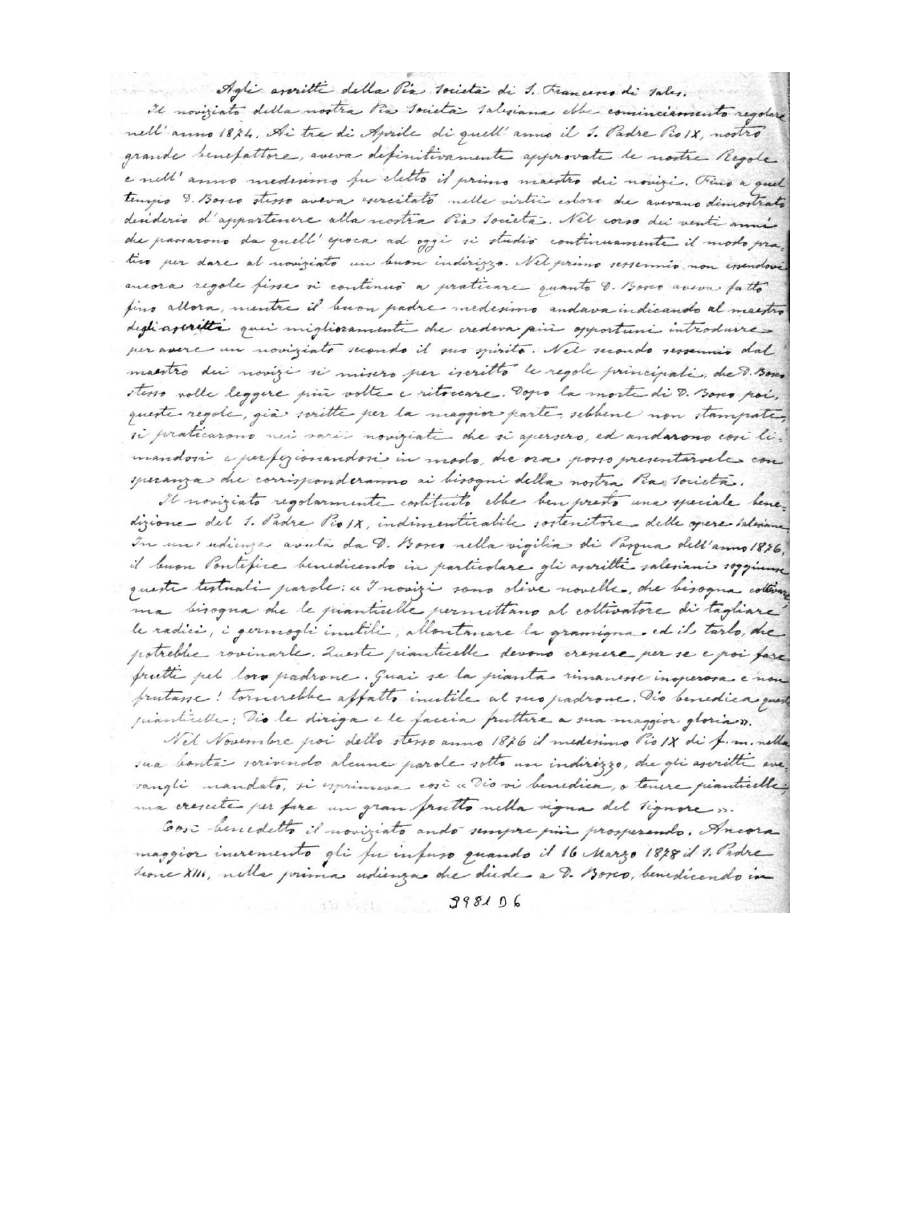 Agli ascritti della Pia Società di S. Francesco di Sales.
Il noviziato della nostra Pia Società Salesiana ebbe cominciamento regolare
nell'anno 1874. Ai tre di Aprile di quell'anno il S. Padre Pio IX, nostro
grande benefattore, aveva definitivamente approvate le nostre Regole
e nell'anno medesimo fu eletto il primo maestro dei novizi. Fino a quel
tempo D. Bosco stesso aveva esercitato nelle virtù coloro che avevano dimostrato
desiderio d'appartenere alla nostra Pia Società. Nel corso dei venti anni
che passarono da quell'epoca ad oggi si studiò continuamente il modo pra-
tico per dare al noviziato un buon indirizzo. Nel primo sessennio, non essendovi
ancora regole fisse si continuò a praticare quanto D. Bosco aveva fatto
fino allora, mentre il buon padre medesimo andava indicando al maestro
degli ascritti quei miglioramenti che credeva più opportuni introdurre
per avere un noviziato secondo il suo spirito. Nel secondo sessennio dal
maestro dei novizi si misero per iscritto le regole principali, che D. Bosco
stesso volle leggere più volte e ritoccare. Dopo la morte di D. Bosco poi,
queste regole, già scritte per la maggior parte, sebbene non stampate,
si praticarono nei vari noviziati che si apersero, ed andarono così li-
mandosi e perfezionandosi in modo, che ora posso presentarvele con
speranza che corrisponderanno ai bisogni della nostra Pia Società.
Il noviziato regolarmente costituito ebbe ben presto una speciale bene-
dizione del S. Padre Pio IX, indimenticabile sostenitore delle opere salesiane.
In un'udienza avuta da D. Bosco nella vigilia di Pasqua dell'anno 1876,
il buon Pontefice benedicendo in particolare gli ascritti salesiani soggiunse
queste testuali parole: « I novizi sono olive novelle, che bisogna coltivare
ma bisogna che le pianticelle permettano al coltivatore di tagliare
le radici, i germogli inutili, allontanare la gramigna ed il tarlo, che
potrebbe rovinarle. Queste pianticelle devono crescere per se e poi fare
frutti pel loro padrone. Guai se la pianta rimanesse inoperosa e non
fruttasse! tornerebbe affatto inutile al suo padrone. Dio benedica queste
pianticelle; Dio le diriga e le faccia fruttare a sua maggior gloria ».
Nel Novembre poi dello stesso anno 1876 il medesimo Pio IX di f. m. nella
sua bontà scrivendo alcune parole sotto un indirizzo, che gli ascritti ave-
vangli mandato, si esprimeva così « Dio vi benedica, o tenere pianticelle,
ma crescete per fare un gran frutto nella vigna del Signore ».
Così benedetto il noviziato andò sempre più prosperando. Ancora
maggior incremento gli fu infuso quando il 16 Marzo 1878 il S. Padre
Leone XIII, nella prima udienza che diede a D. Bosco, benedicendo in
9981 D6